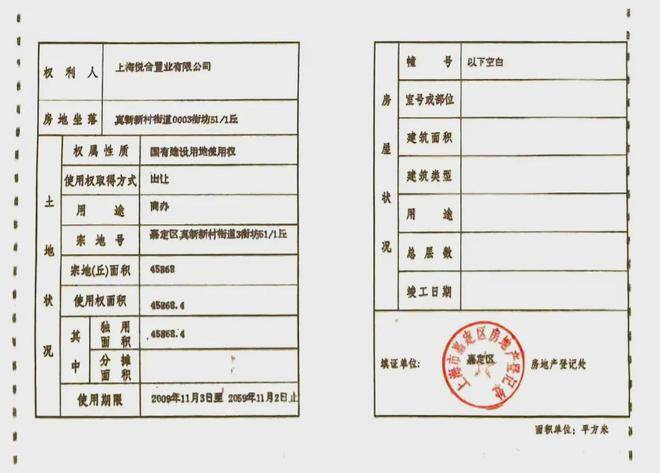 权利人 上海悦合置业有限公司
房地坐落 真新新村街道0003街坊51/1丘
土地状况
权属性质 国有建设用地使用权
使用权取得方式 出让
用途 商办
宗地号 嘉定区真新新村街道3街坊51/1丘
宗地(丘)面积 45868
使用权面积 45868.4
其中 独用面积 45868.4
分摊面积
使用期限 2009年11月3日至 2059年11月2日止
房屋状况
幢号 以下空白
室号或部位
建筑面积
建筑类型
用途
总层数
竣工日期
填证单位: 嘉定区 房地产登记处
上海市嘉定区房地产登记处
面积单位: 平方米